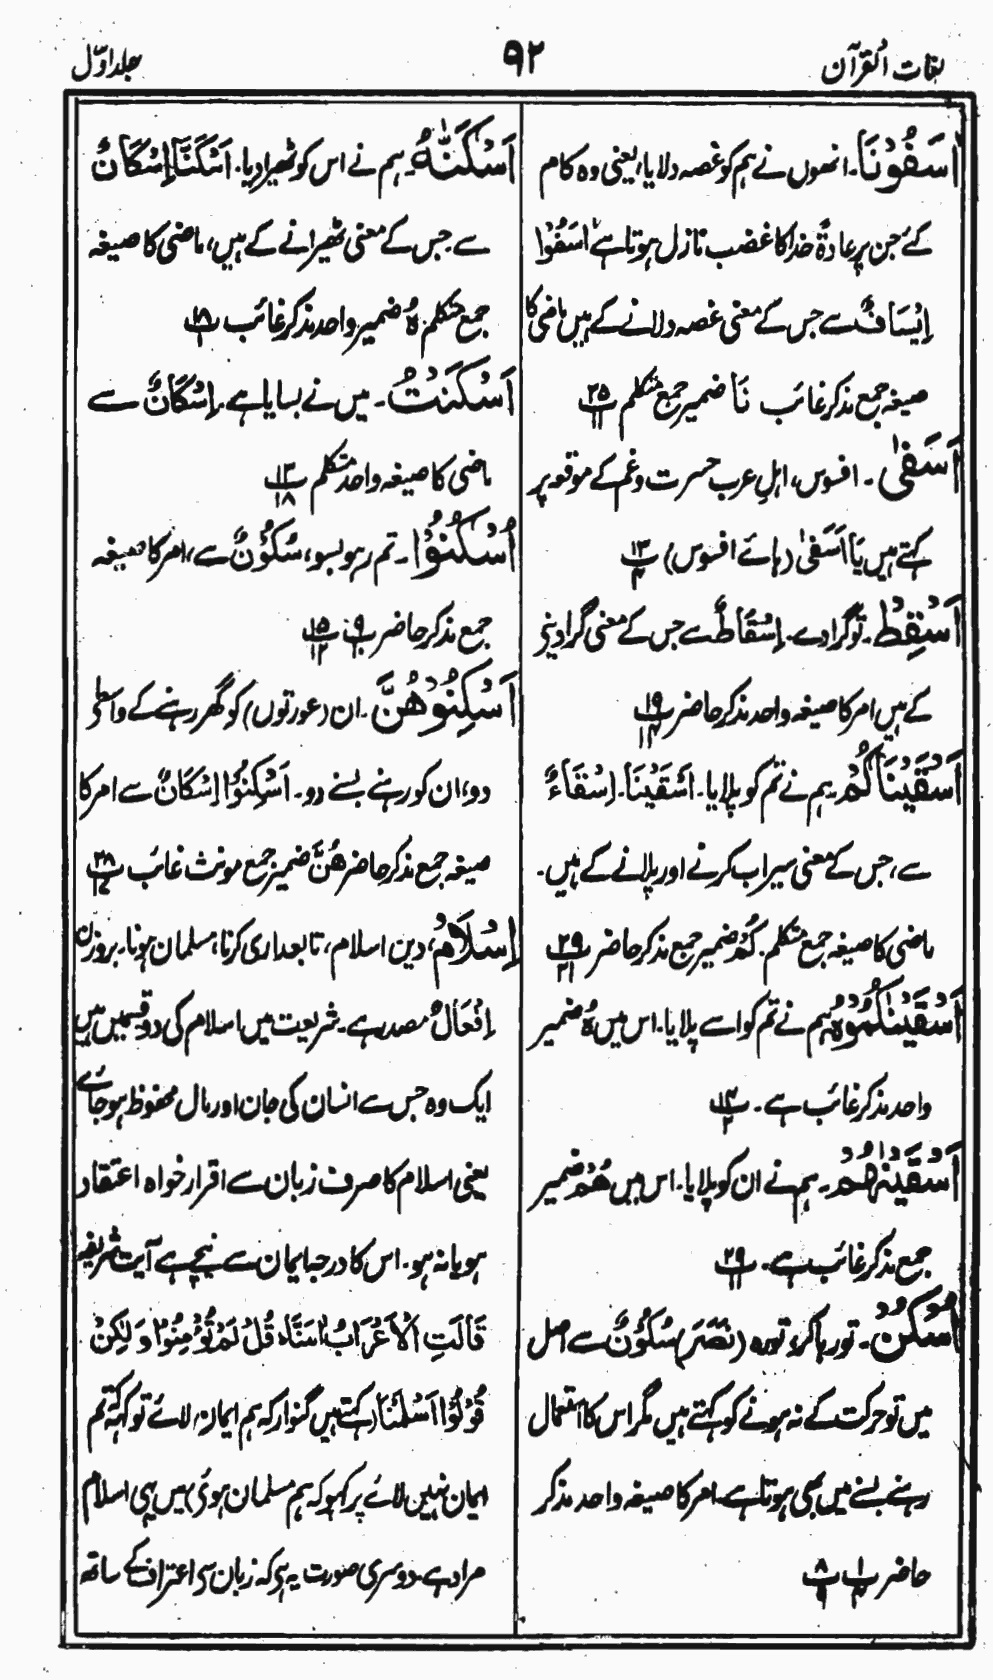 لغات القرآن
۹۲
جلد اوّل
اٰسَفُوْنَا۔ انھوں نے ہم کو غصہ دلایا، یعنی وہ کام
کئے جن پر عادۃً خدا کا غضب نازل ہوتا ہے اٰسَفُوْا
اِیْسَافٌ سے جس کے معنی غصہ دلانے کے ہیں ماضی کا
صیغہ جمع مذکر غائب نَا ضمیر جمع متکلم ۲۵پ ۱۱
اَسَفیٰ۔ افسوس، اہلِ عرب حسرت وغم کے موقعہ پر
کہتے ہیں یَا اَسَفیٰ (ہائے افسوس) ۱۳پ ۴
اَسْقِطْ۔ تو گرا دے۔ اِسْقَاطٌ سے جس کے معنی گرا دینے
کے ہیں امر کا صیغہ واحد مذکر حاضر ۱۹پ ۱۴
اَسْقَیْنَاکُمْ۔ ہم نے تم کو پلایا۔ اَسْقَیْنَا۔ اِسْقَاءٌ
سے، جس کے معنی سیراب کرنے اور پلانے کے ہیں۔
ماضی کا صیغہ جمع متکلم۔ کُمْ ضمیر جمع مذکر حاضر ۲۹پ ۲۱
اَسْقَیْنٰکُمُوْہُ ہم نے تم کو اسے پلایا۔ اس میں ہُ ضمیر
واحد مذکر غائب ہے۔ ۱۴پ ۲
اَسْقَیْنٰہُمْ۔ ہم نے ان کو پلایا۔ اس میں ھُمْ ضمیر
جمع مذکر غائب ہے۔ ۲۹پ ۱۱
اُسْکُنْ۔ تو رہا کر، تو رہ (نَصَرَ) سُکُوْنٌ سے اصل
میں تو حرکت کے نہ ہونے کو کہتے ہیں مگر اس کا استعمال
رہنے بسنے میں بھی ہوتا ہے۔ امر کا صیغہ واحد مذکر
حاضر ۱پ ۴ ۸پ ۹
اَسْکَنّٰہُ۔ ہم نے اس کو ٹھیرا دیا۔ اَسْکَنَّا اِسْکَانٌ
سے جس کے معنی ٹھیرانے کے ہیں، ماضی کا صیغہ
جمع متکلم ہُ ضمیر واحد مذکر غائب ۱۸پ ۱
اَسْکَنْتُ۔ میں نے بسایا ہے۔ اِسْکَانٌ سے
ماضی کا صیغہ واحد متکلم ۱۳پ ۱۸
اُسْکُنُوْا۔ تم رہو بسو، سُکُوْنٌ سے، امر کا صیغہ
جمع مذکر حاضر ۹پ ۱۰ ۱۵پ ۱۲
اَسْکِنُوْھُنَّ۔ ان (عورتوں) کو گھر رہنے کے واسطے
دو، ان کو رہنے بسنے دو۔ اَسْکِنُوْا اِسْکَانٌ سے امر کا
صیغہ جمع مذکر حاضر ھُنَّ ضمیر جمع مونث غائب ۲۸پ ۱۷
اِسْلَامٌ، دین اسلام، تابعداری کرنا، مسلمان ہونا۔ بروزن
اِفْعَالٌ مصدر ہے۔ شریعت میں اسلام کی دو قسمیں ہیں
ایک وہ جس سے انسان کی جان اور مال محفوظ ہو جائے
یعنی اسلام کا صرف زبان سے اقرار خواہ اعتقاد
ہو یا نہ ہو۔ اس کا درجہ ایمان سے نیچے ہے آیت شریفہ
قَالَتِ الْاَعْرَابُ اٰمَنَّا، قُلْ لَمْ تُؤْمِنُوْا وَ لٰکِنْ
قُوْلُوْا اَسْلَمْنَا (کہتے ہیں گنوار کہ ہم ایمان لائے تو کہہ تم
ایمان نہیں لائے پر کہو کہ ہم مسلمان ہوئی) میں یہی اسلام
مراد ہے۔ دوسری صورت یہ ہی کہ زبان سی اعتراف کے ساتھ